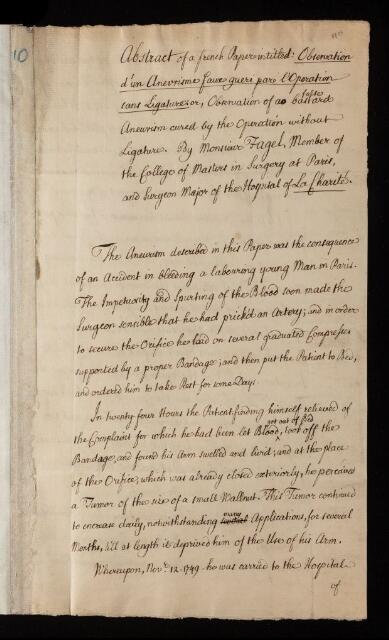 10
Abstract of a french Paper intitled: Observation
d'un Anevrisme faux gueri par l'Operation
sans Ligature: or, Observation of a
false
bastard
Aneurism cured by the Operation without
Ligature. By Monsieur Fagel, Member of
the College of Masters in Surgery at Paris,
and Surgeon Major of the Hospital of La Charité.
The Aneurism described in this Paper was the consequence
of an Accident in bleeding a labouring young Man in Paris.
The Impetuosity and Spurting of the Blood soon made the
Surgeon sensible that he had prick'd an Artery; and in order
to secure the Orifice he laid on several graduated Compresses
supported by a proper Bandage; and then put the Patient to Bed,
and ordered him to take Rest for some Days.
In twenty four Hours the Patient finding himself relieved of
got out of Bed
the Complaint for which he had been let Blood, took off the
Bandage, and found his Arm swelled and livid; and at the place
of the Orifice, which was already closed exteriorly, he perceived
a Tumor of the size of a small Wallnut. This Tumor continued
many
to encrease daily, notwithstanding Applications, for several
Months, till at length it deprived him of the Use of his Arm.
Whereupon, Novr. 12. 1749. he was carried to the Hospital
of